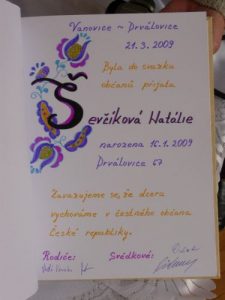 Vanovice ~ Drválovice
21. 3. 2009
Byla do svazku
občanů přijata
Ševčíková Natálie
narozena 10. 1. 2009
Drválovice 67
Zavazujeme se, že dceru
vychováme v čestného občana
České republiky.
Rodiče: Svědkové: